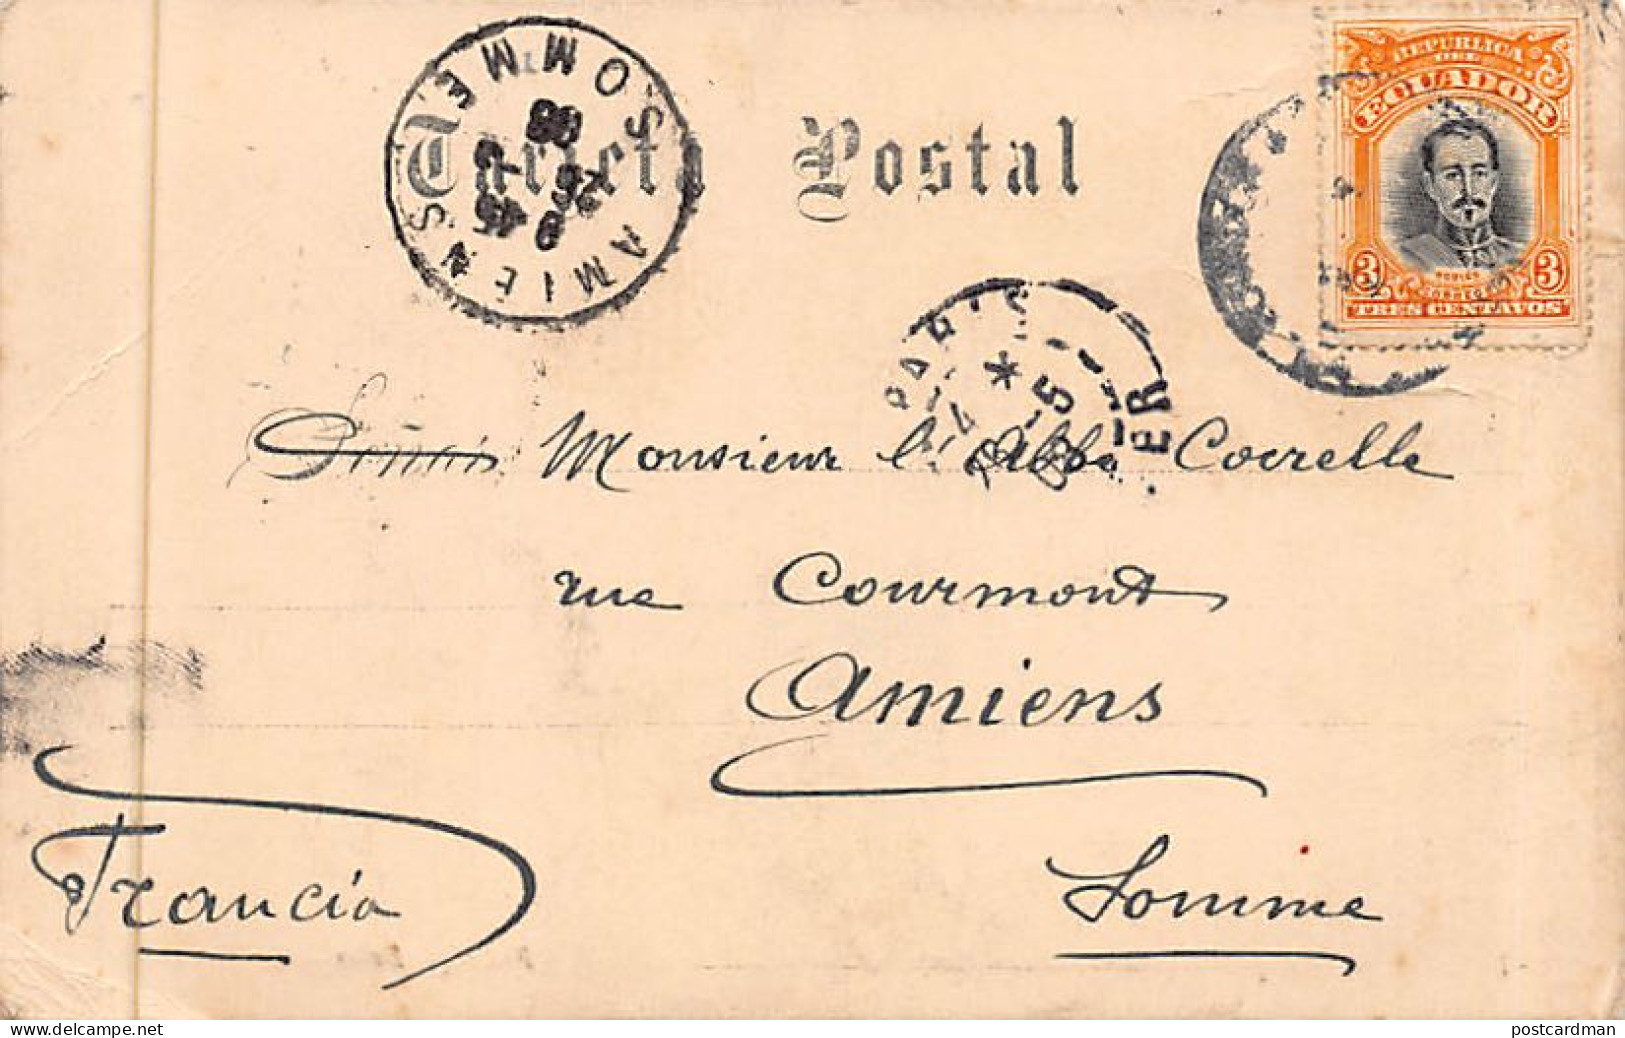 Tarjeta Postal
REPUBLICA
DEL
ECUADOR
3 3
TRES CENTAVOS
AMIENS SOMME
9 45
26
08
PARIS
ETRANGER
Monsieur l'Abbé
rue Courmont
Amiens
Somme
Francia
delcampe.net
postcardman